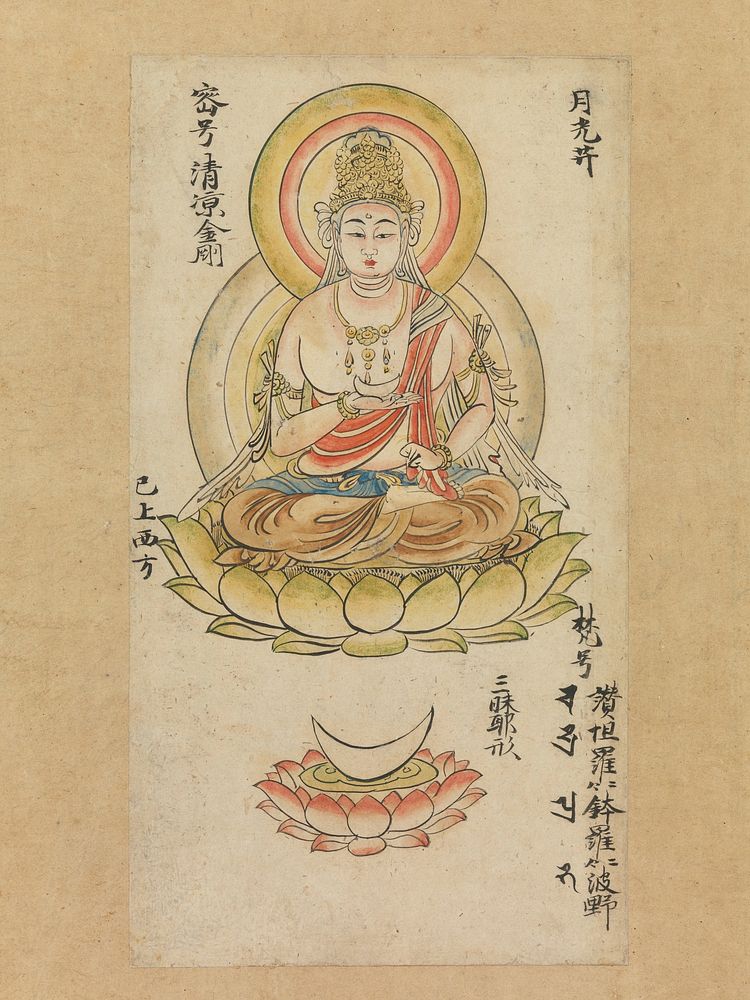 月光菩
密号清涼金剛
已上西方
三昧耶形
梵号
讃怛羅二合鉢羅二合波野